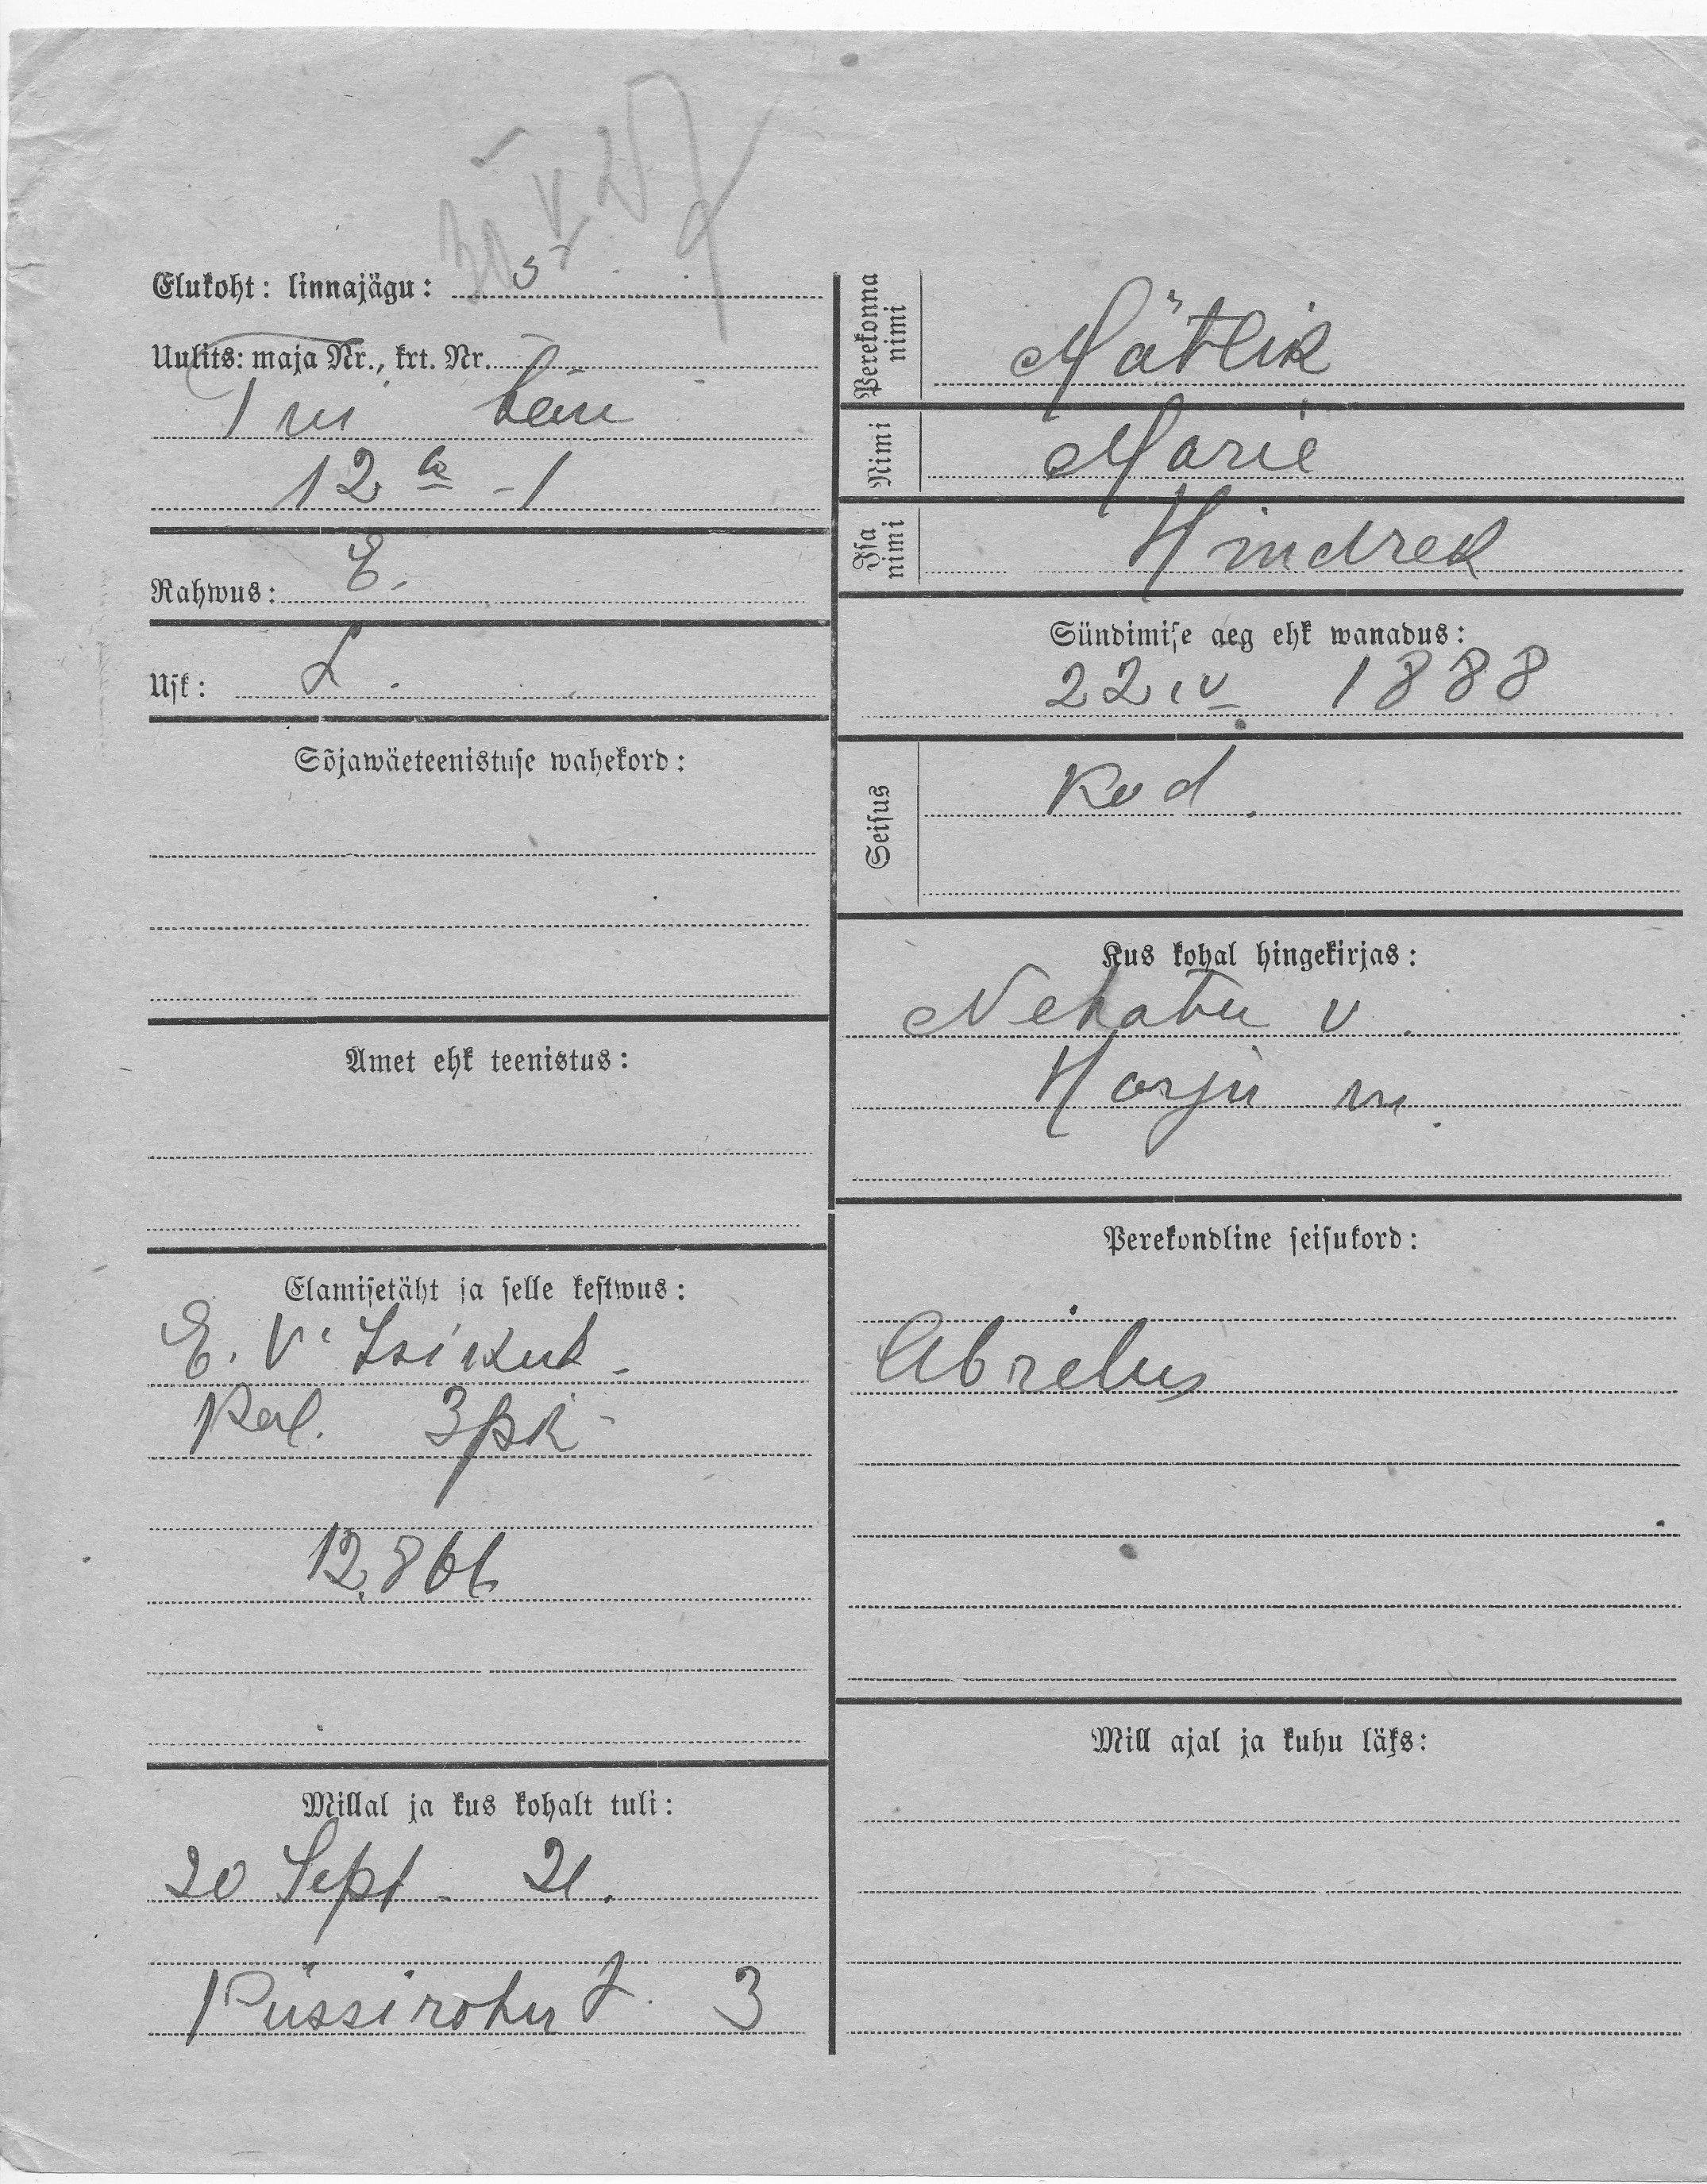 30 V 27
Elukoht: linnajägu: 5
Uulits: maja Nr., krt. Nr.
tän
12 a - 1
Rahwus: E.
Usk: L.
Sõjawäeteenistuse wahekord:
Amet ehk teenistus:
Elamisetäht ja selle kestwus:
E. V. Isikut.
3 pk
12,866
Millal ja kus kohalt tuli:
20 Sept. 21.
Püssirohu t. 3
Perekonna nimi
Mätlik
Nimi
Marie
Isa nimi
Hindrek
Sündimise aeg ehk wanadus:
22 IV 1888
Seisus
Kod.
Kus kohal hingekirjas:
Nehatu v.
Harju m.
Perekondline seisukord:
Abielus
Mill ajal ja kuhu läks: